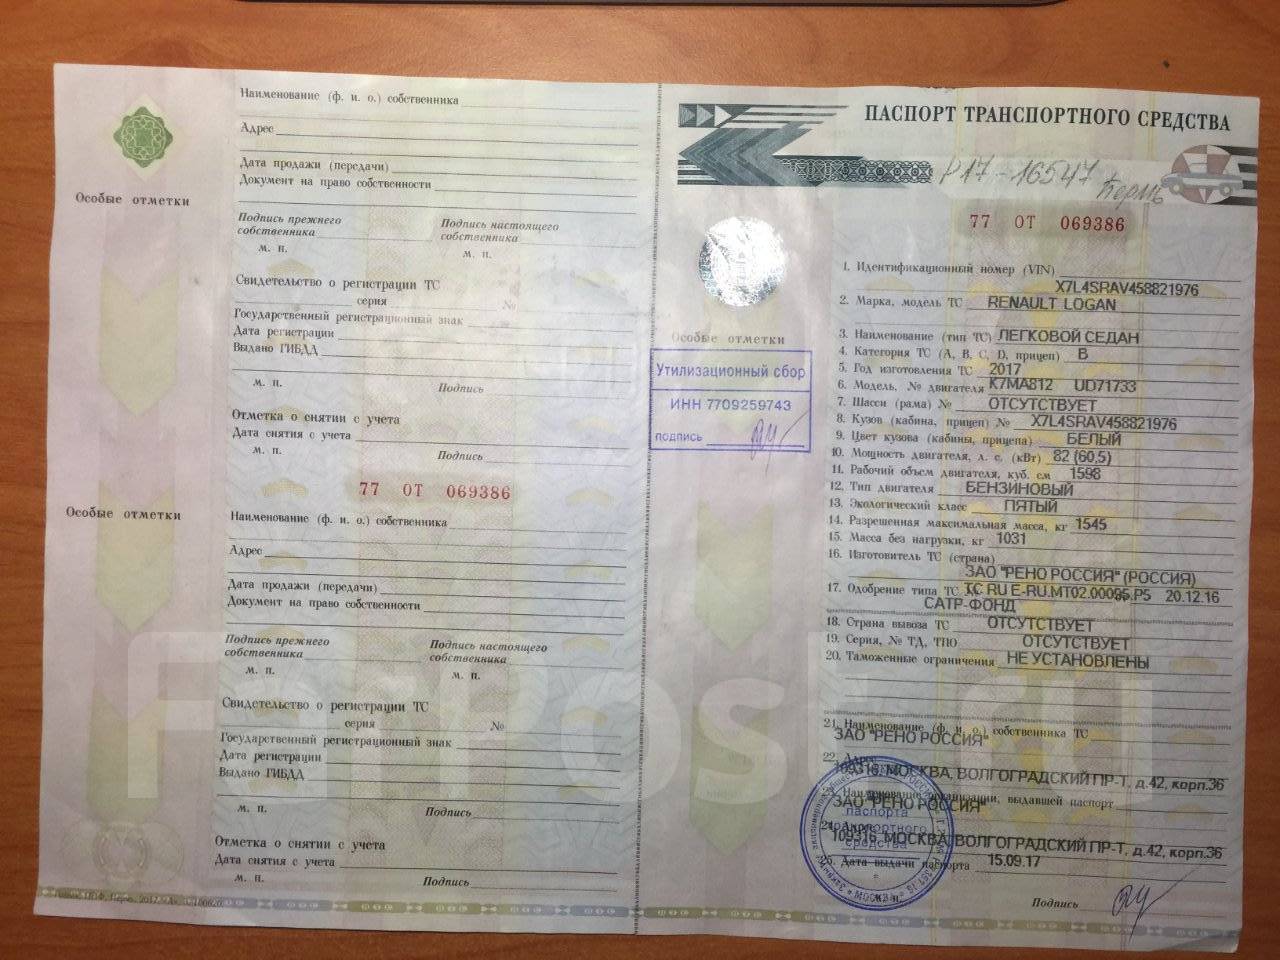 Особые отметки
Особые отметки
Наименование (ф. и. о.) собственника
Адрес
Дата продажи (передачи)
Документ на право собственности
Подпись прежнего собственника
Подпись настоящего собственника
м. п.
м. п.
Свидетельство о регистрации ТС
серия №
Государственный регистрационный знак
Дата регистрации
Выдано ГИБДД
м. п. Подпись
Отметка о снятии с учета
Дата снятия с учета
м. п. Подпись
77 ОТ 069386
Наименование (ф. и. о.) собственника
Адрес
Дата продажи (передачи)
Документ на право собственности
Подпись прежнего собственника
Подпись настоящего собственника
м. п.
м. п.
Свидетельство о регистрации ТС
серия №
Государственный регистрационный знак
Дата регистрации
Выдано ГИБДД
м. п. Подпись
Отметка о снятии с учета
Дата снятия с учета
м. п. Подпись
Особые отметки
Утилизационный сбор
ИНН 7709259743
подпись
ПАСПОРТ ТРАНСПОРТНОГО СРЕДСТВА
Р17-16547 Пермь
77 ОТ 069386
1. Идентификационный номер (VIN)
X7L4SRAV458821976
2. Марка, модель ТС RENAULT LOGAN
3. Наименование (тип ТС) ЛЕГКОВОЙ СЕДАН
4. Категория ТС (A, B, C, D, прицеп) B
5. Год изготовления ТС 2017
6. Модель, № двигателя K7MA812 UD71733
7. Шасси (рама) № ОТСУТСТВУЕТ
8. Кузов (кабина, прицеп) № X7L4SRAV458821976
9. Цвет кузова (кабины, прицепа) БЕЛЫЙ
10. Мощность двигателя, л. с. (кВт) 82 (60,5)
11. Рабочий объем двигателя, куб. см 1598
12. Тип двигателя БЕНЗИНОВЫЙ
13. Экологический класс ПЯТЫЙ
14. Разрешенная максимальная масса, кг 1545
15. Масса без нагрузки, кг 1031
16. Изготовитель ТС (страна)
ЗАО "РЕНО РОССИЯ" (РОССИЯ)
17. Одобрение типа ТС № ТС RU E-RU.MT02.00095.P5 от 20.12.16
САТР-ФОНД
18. Страна вывоза ТС ОТСУТСТВУЕТ
19. Серия, № ТД, ТПО ОТСУТСТВУЕТ
20. Таможенные ограничения НЕ УСТАНОВЛЕНЫ
21. Наименование (ф. и. о.) собственника ТС
ЗАО "РЕНО РОССИЯ"
22. Адрес
109316, МОСКВА, ВОЛГОГРАДСКИЙ ПР-Т, д.42, корп.36
23. Наименование организации, выдавшей паспорт
ЗАО "РЕНО РОССИЯ"
24. Адрес
109316, МОСКВА, ВОЛГОГРАДСКИЙ ПР-Т, д.42, корп.36
25. Дата выдачи паспорта 15.09.17
м. п.
Подпись
паспорта
транспортного
средства
МОСКВА
FarPost.ru